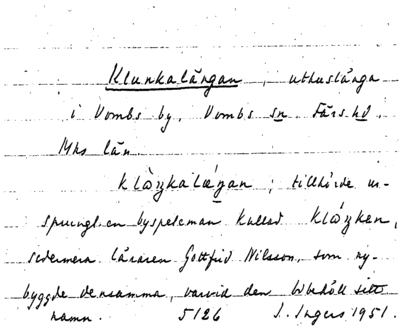 Klunkalängan, uthuslänga
i Vombs by, Vombs sn. Färs hd.
Mhs län.
klòŋkalæ̀ŋan; tillhörde ur-
sprungl. en byspeleman kallad klòŋken,
sedermera läraren Gottfrid Nilsson, som ny-
byggde densamma, varvid den bibehöll sitt
namn. 5126 J. Ingers 1951.